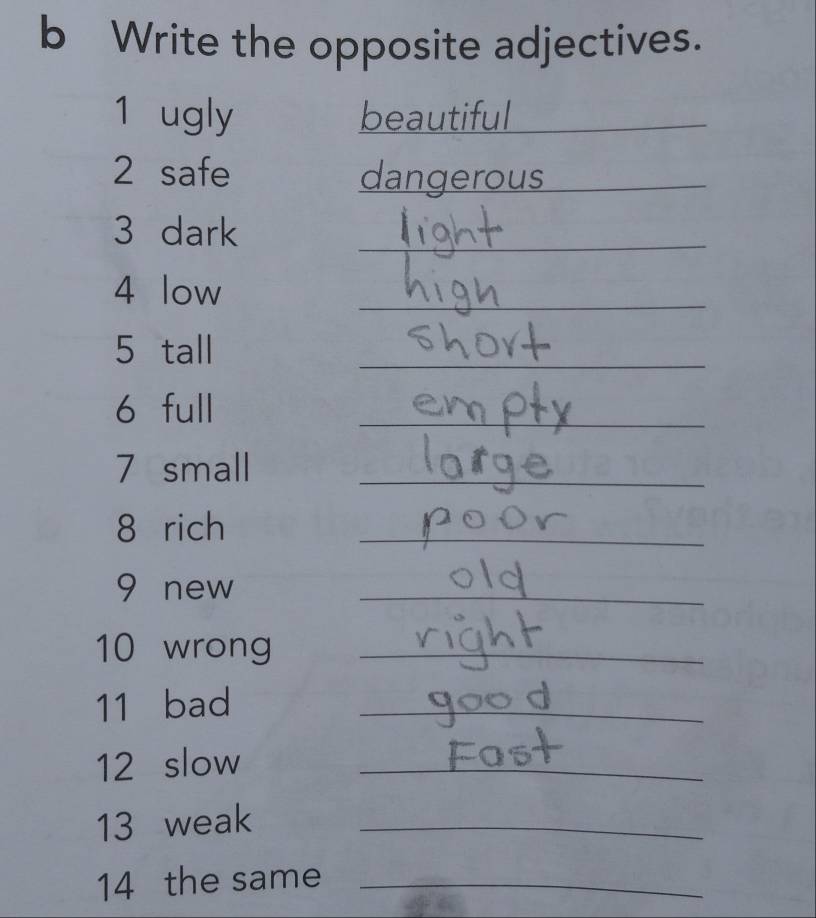 b Write the opposite adjectives.
1 ugly beautiful
2 safe dangerous
3 dark light
4 low high
5 tall short
6 full empty
7 small large
8 rich poor
9 new old
10 wrong right
11 bad good
12 slow Fast
13 weak
14 the same